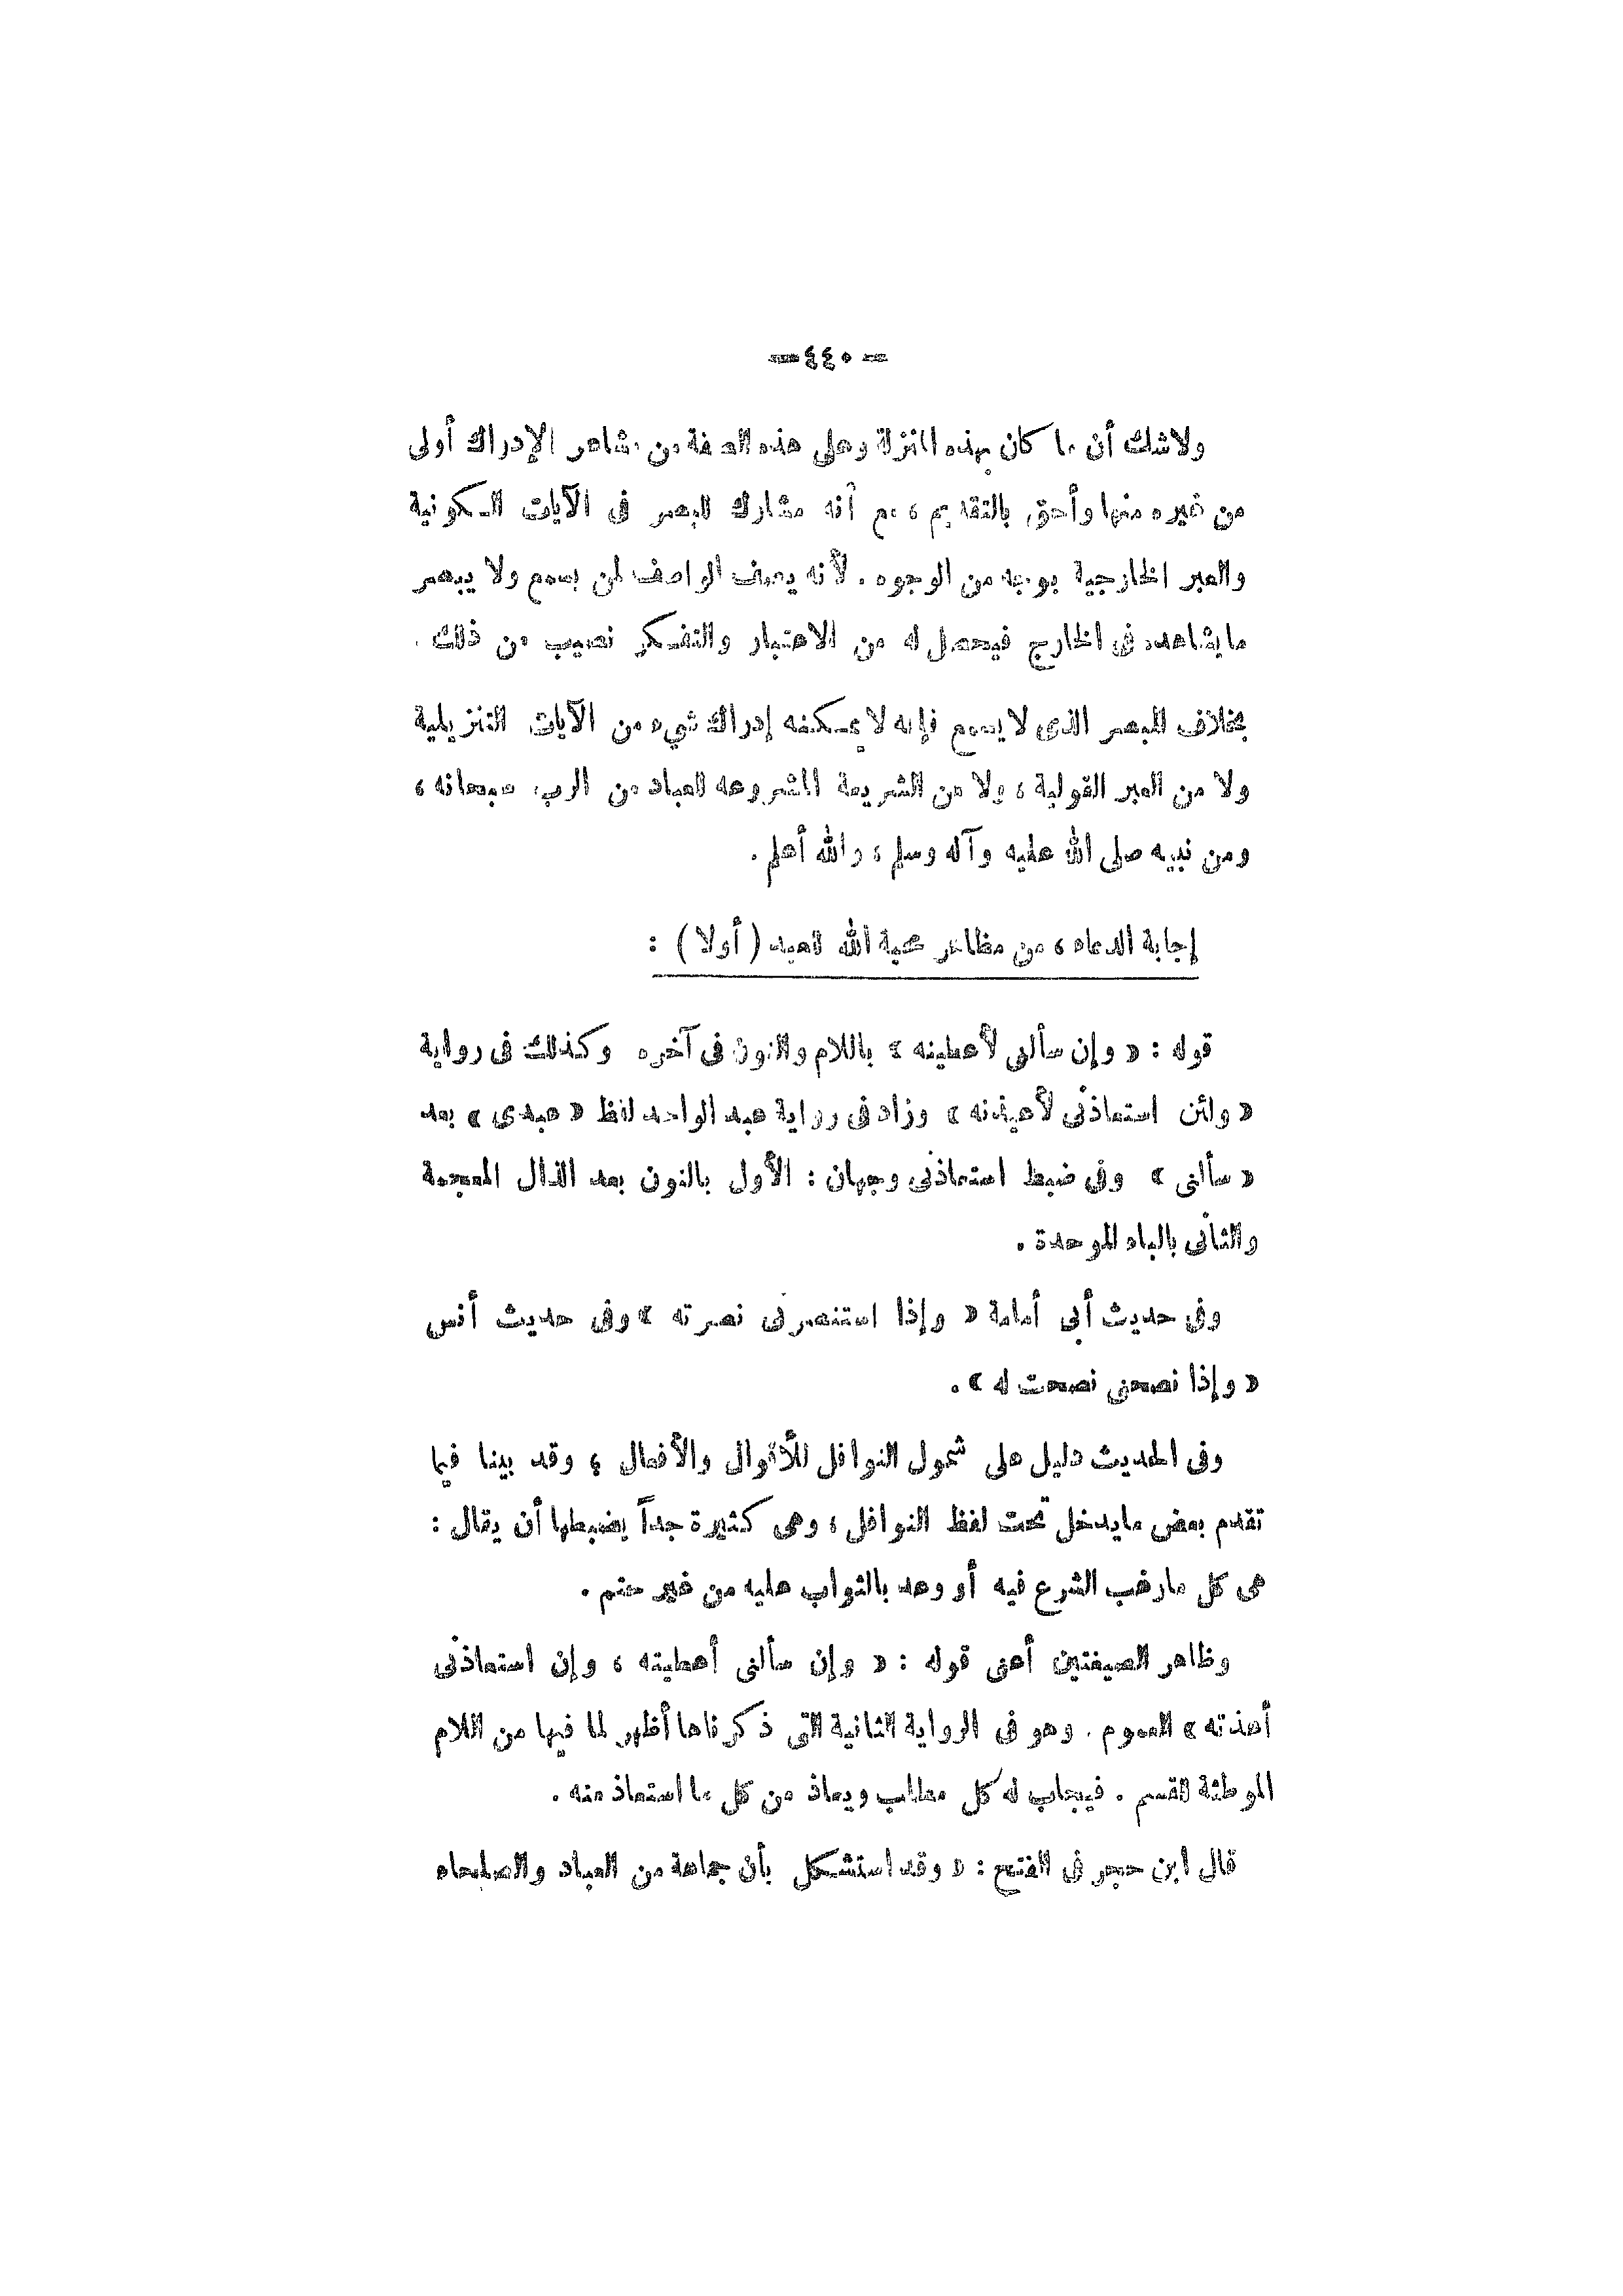 — ٤٤٠ —
ولاشك أن ما كان بهذه المنزلة وعلى هذه الصفة من مشاعر الإدراك أولى
من غيره منها وأحق بالتقديم ، مع أنه مشارك للبصر فى الآيات الكونية
والعبر الخارجية بوجه من الوجوه . لأنه يصف الواصف لمن يسمع ولا يبصر
مايشاهده فى الخارج فيحصل له من الاعتبار والتفكر نصيب من ذلك .
بخلاف المبصر الذى لايسمع فإنه لا يمكنه إدراك شىء من الآيات التنزيلية
ولا من العبر القولية ، ولا من الشريعة المشروعه للعباد من الرب سبحانه ،
ومن نبيه صلى الله عليه وآله وسلم ، والله أعلم .
إجابة الدعاء ، من مظاهر محبة الله للعبد ( أولا ) :
قوله : « وإن سألنى لأعطينه » باللام والنون فى آخره وكذلك فى رواية
« ولئن استعاذنى لأعيذنه » وزاد فى رواية عبد الواحد لفظ « عبدى » بعد
« سألنى » وفى ضبط استعاذنى وجهان : الأول بالنون بعد الذال المعجمة
والثانى بالباء الموحدة .
وفى حديث أبى أمامة « وإذا استنصرنى نصرته » وفى حديث أنس
« وإذا نصحنى نصحت له » .
وفى الحديث دليل على شمول النوافل للأقوال والأفعال ، وقد بينا فيما
تقدم بعض مايدخل تحت لفظ النوافل ، وهى كثيرة جداً يضبطها أن يقال :
هى كل مارغب الشرع فيه أو وعد بالثواب عليه من غير حتم .
وظاهر الصيغتين أعنى قوله : « وإن سألنى أعطيته ، وإن استعاذنى
أعذته » العموم . وهو فى الرواية الثانية التى ذكرناها أظهر لما فيها من اللام
الموطئة للقسم . فيجاب له كل مطلب ويعاذ من كل ما استعاذ منه .
قال ابن حجر فى الفتح : « وقد استشكل بأن جماعة من العباد والصلحاء